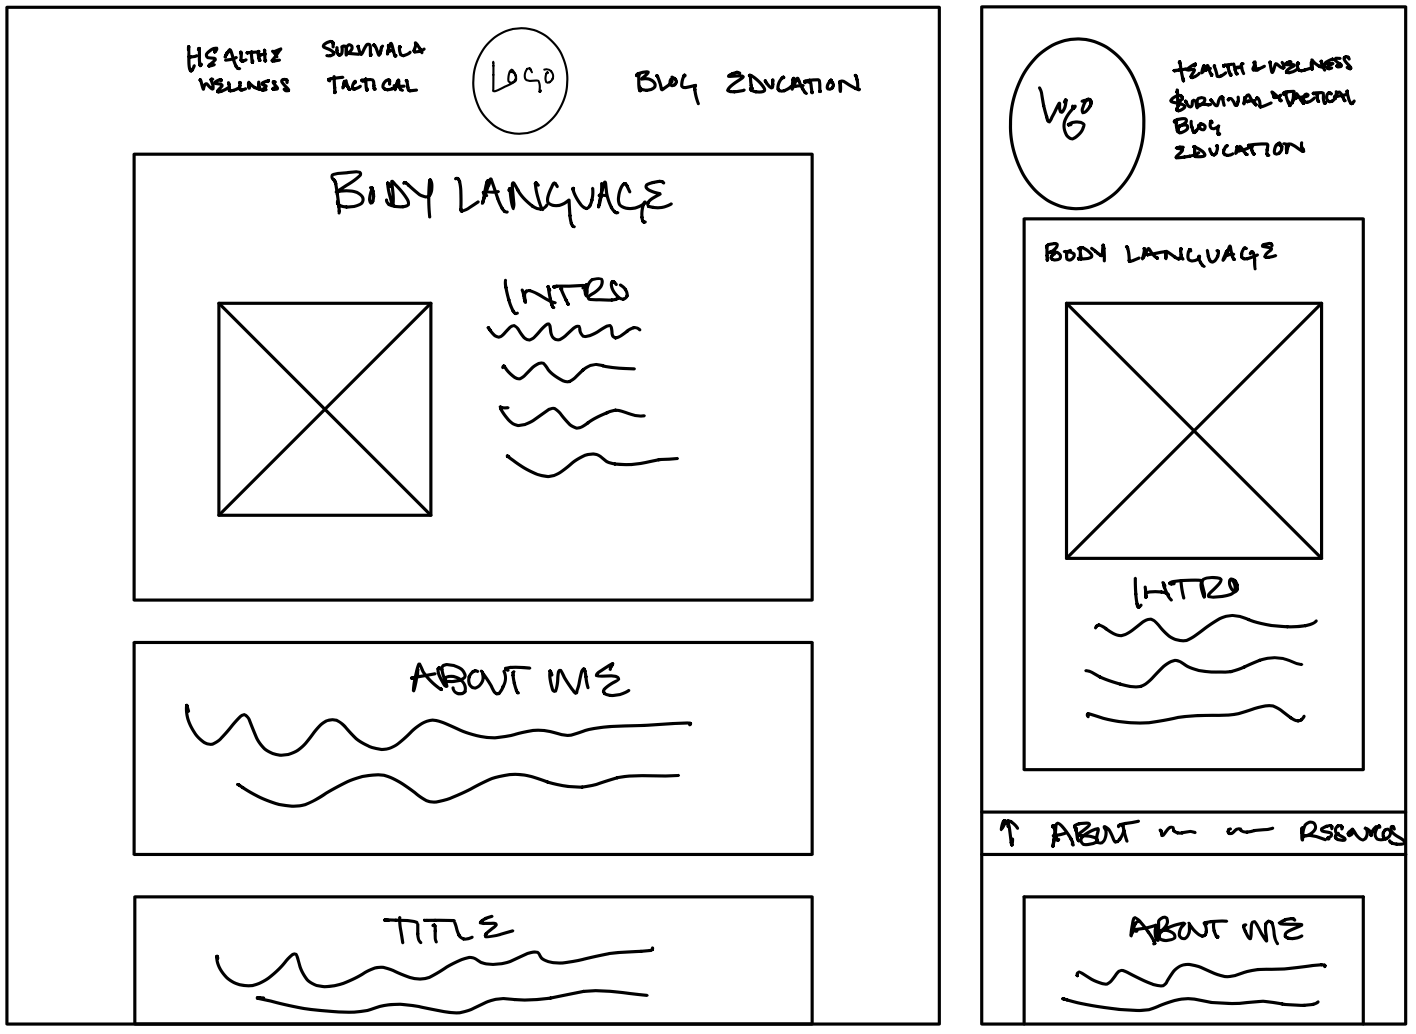 HEALTH &
WELLNESS
SURVIVAL &
TACTICAL
LOGO
BLOG
EDUCATION
BODY LANGUAGE
INTRO
ABOUT ME
TITLE
LOGO
HEALTH & WELLNESS
SURVIVAL & TACTICAL
BLOG
EDUCATION
BODY LANGUAGE
INTRO
↑ ABOUT
ABOUT ME